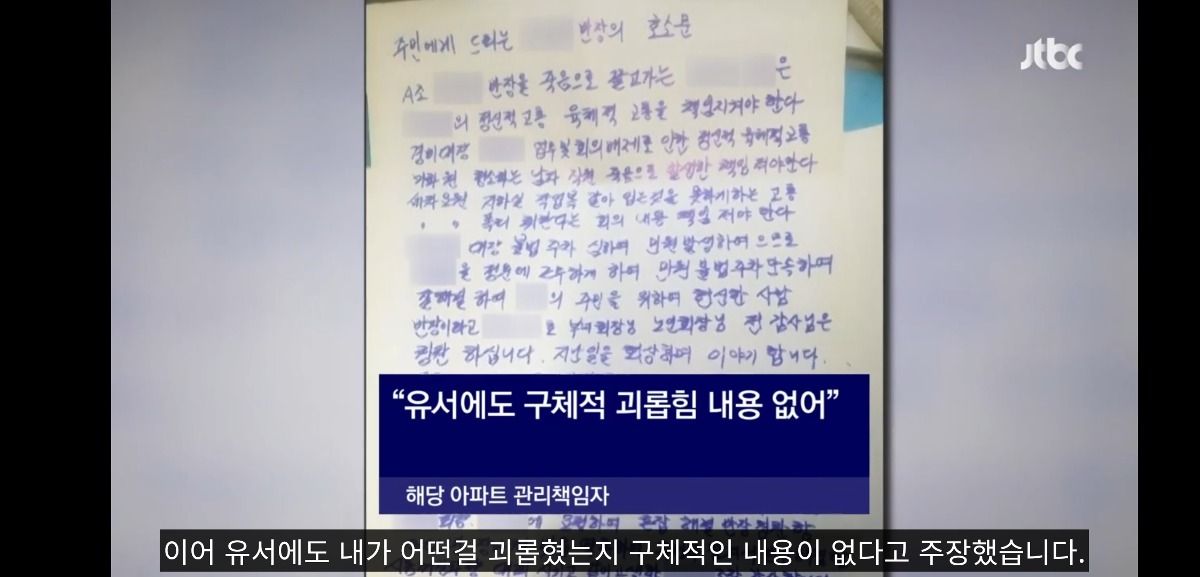 jtbc
주민에게 드리는 반장의 호소문
A조 반장을 죽음으로 끌고가는 은
의 정신적고통 육체적 고통을 책임져야 한다
경비대장 업무및 회의배제로 인한 정신적 육체적고통
청소하는 남자 직원 죽음으로 발생한 책임 져야한다
지하실 작업복 갈아 입는것을 못하게하는 고통
〃 〃 회의 내용 책임 져야 한다
대장 불법 주차 심하여 민원발생하여 으므로
을 정문에 근무하게 하여 민원 불법주차단속하여
잘해결 하여 의 주민을 위하여 헌신한 사람
반장이라고 로 부녀회장님 노인회장님 전 감사님은
칭찬 하십니다. 지난일을 회상하며 이야기 합니다.
“유서에도 구체적 괴롭힘 내용 없어”
해당 아파트 관리책임자
이어 유서에도 내가 어떤걸 괴롭혔는지 구체적인 내용이 없다고 주장했습니다.